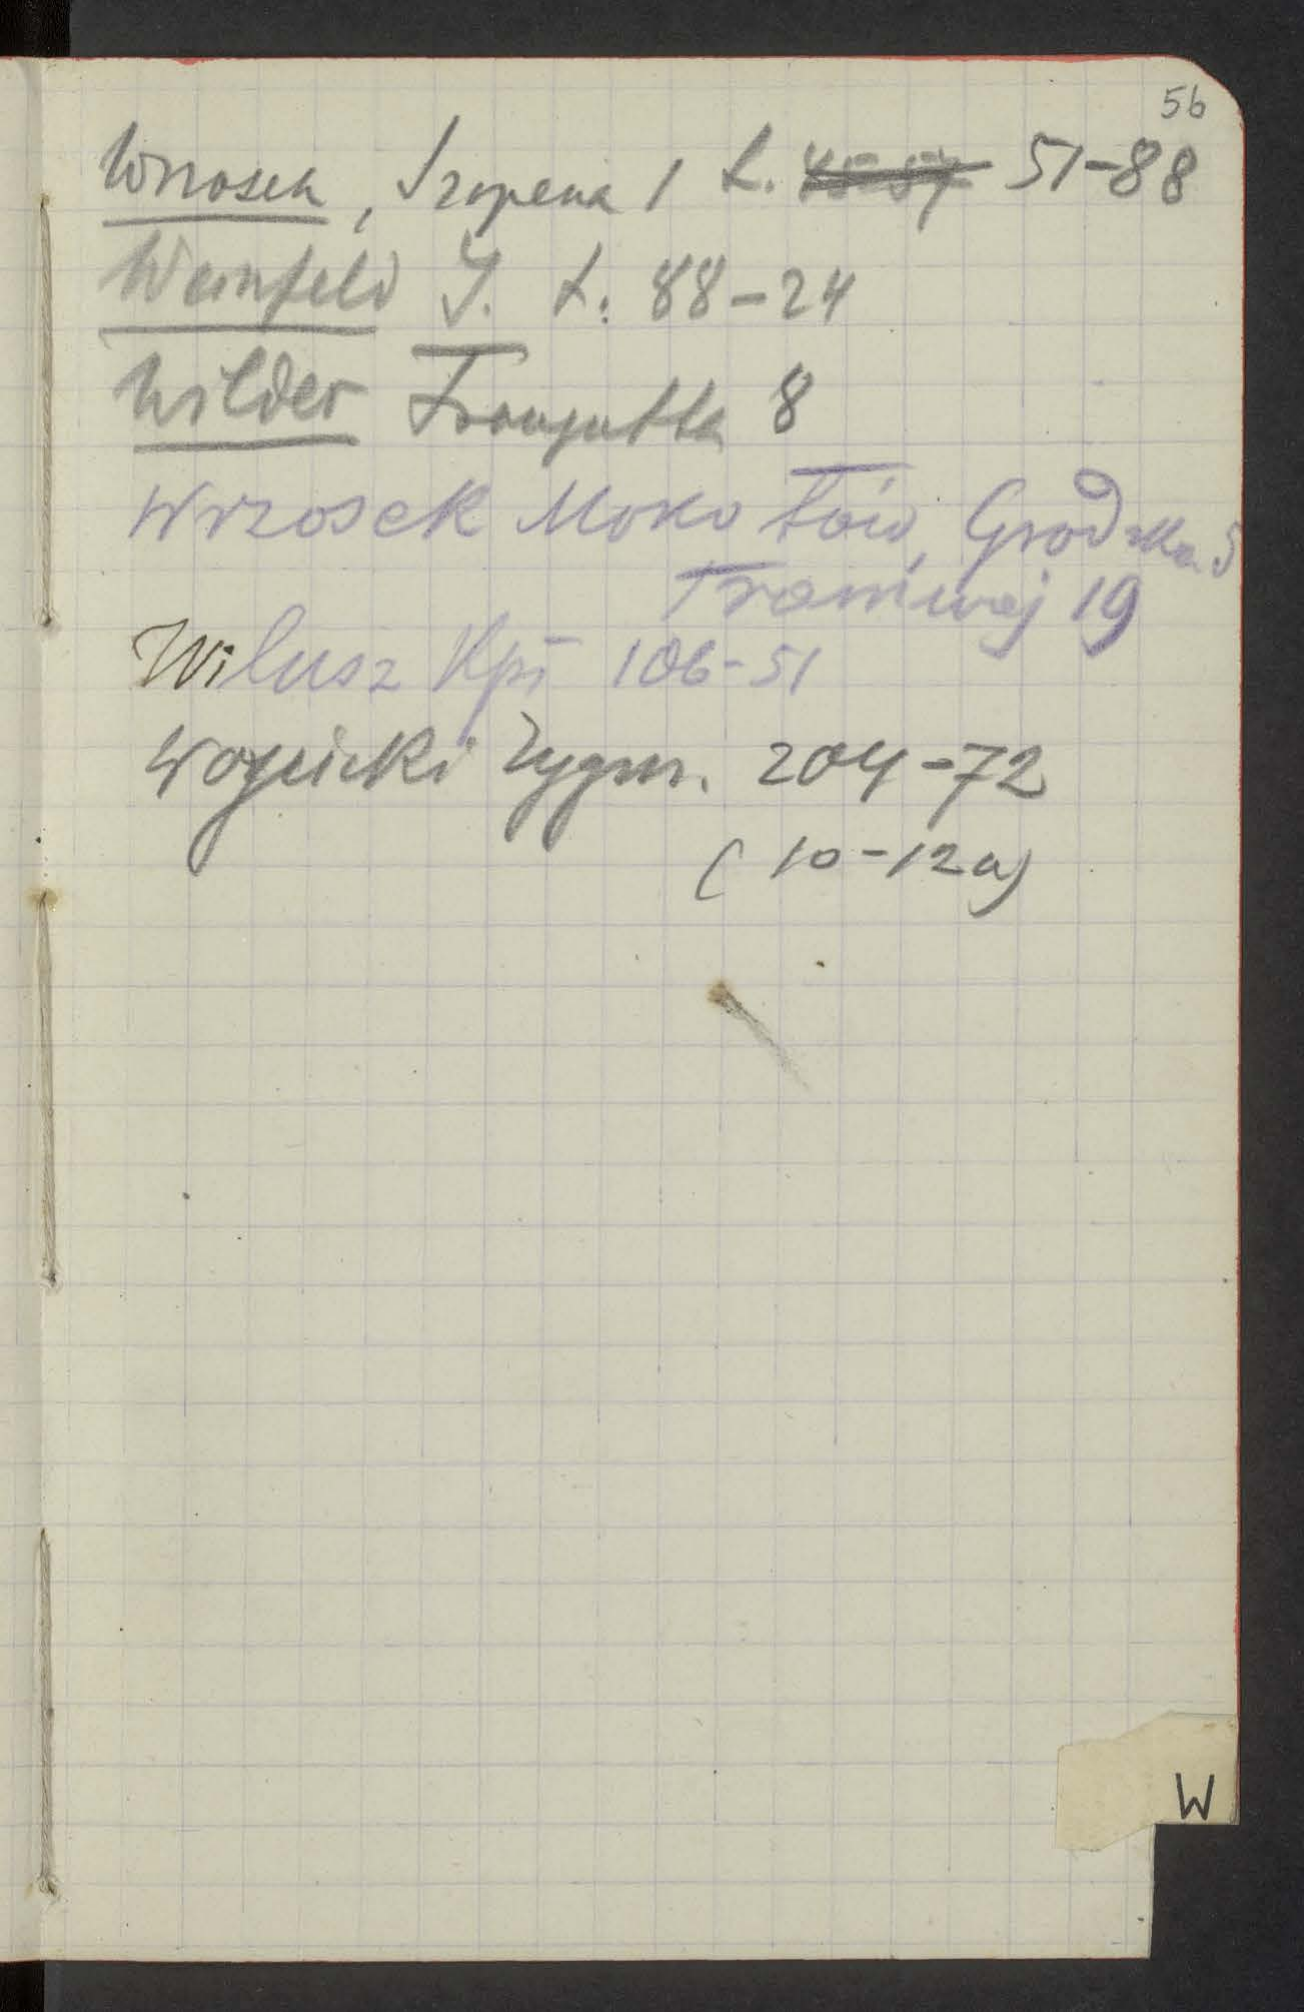 56
Wrzosek, Szopena 1 t. 51-88
Weinfeld I. t. 88-24
Wilder Traugutta 8
Wrzosek Mokotów, Grodzka 5
Tramwaj 19
Wilusz Kpt 106-51
Wojcicki Zygm. 204-72
(10-12a)
W